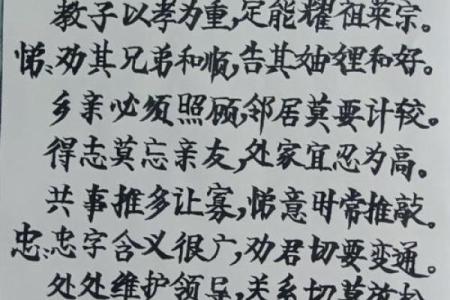 教子以孝为重,定能耀祖荣宗。
悌、劝其兄弟和顺,告其妯娌和好。
乡亲必须照顾,邻居莫要计较。
得志莫忘亲友,处家宜忍为高。
共事推多让寡,悌意时常推敲。
忠、忠字含义很广,劝君切要变通。
处处维护领导,关系切莫放松